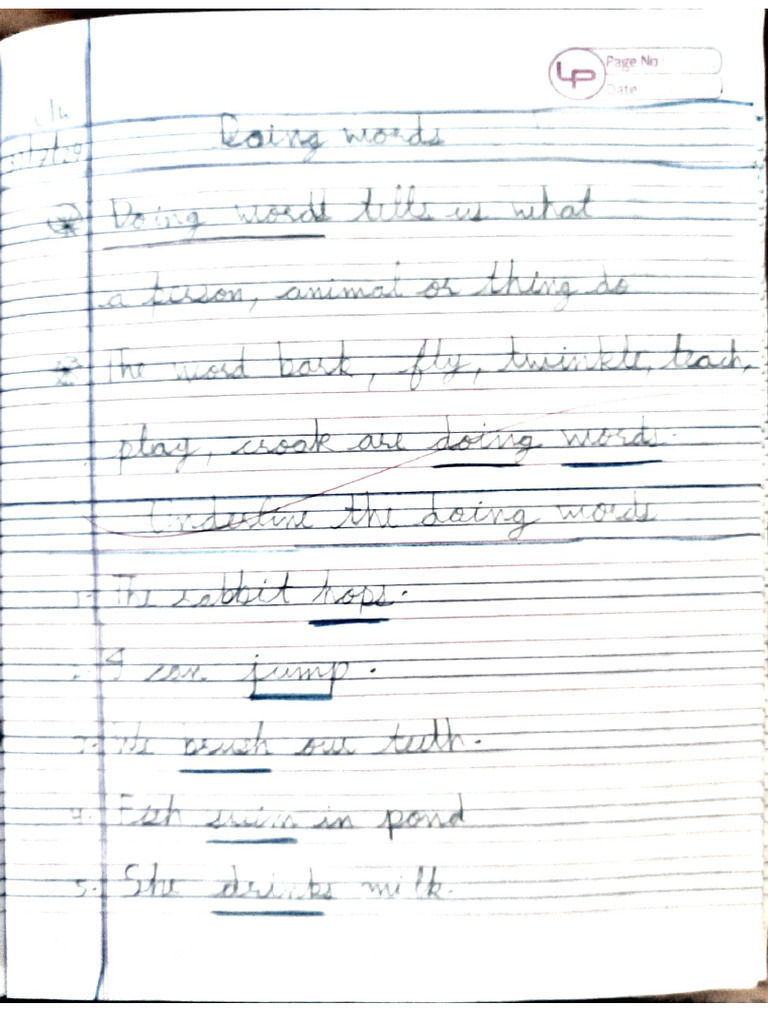 LP Page No
Date
Doing words
Doing words tells us what
a person, animal or thing do
The word bark, fly, twinkle, teach,
play, croak are doing words.
Underline the doing words
1. The rabbit hops.
I can jump.
We brush our teeth.
4. Fish swim in pond
5. She drinks milk.